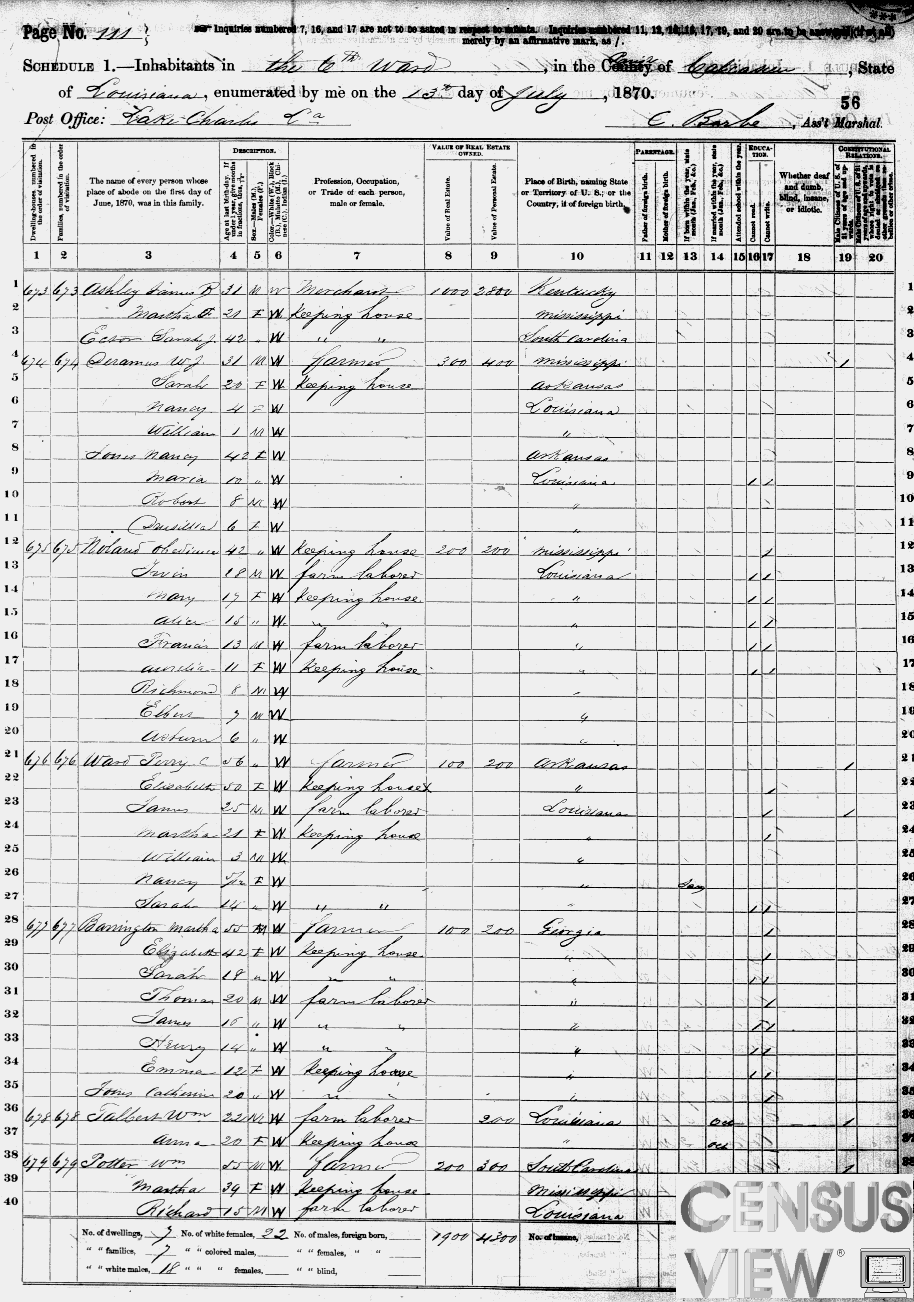 Page No. 111
Inquiries numbered 7, 16, and 17 are not to be asked in respect to infants. Inquiries numbered 11, 12, 15, 16, 17, 19, and 20 are to be answered (if at all)
merely by an affirmative mark, as /.
SCHEDULE 1.—Inhabitants in the 6th Ward, in the County of Calcasieu, State
of Louisiana, enumerated by me on the 13th day of July, 1870.
56
Post Office: Lake Charles La
C. Barbe, Ass't Marshal.
Dwelling-houses, numbered in the order of visitation.
Families, numbered in the order of visitation.
The name of every person whose place of abode on the first day of June, 1870, was in this family.
DESCRIPTION.
Age at last birth-day. If under 1 year, give months in fractions, thus, 3/12
Sex.—Males (M.), Females (F.)
Color.—White (W.), Black (B.), Mulatto (M.), Chinese (C.), Indian (I.)
Profession, Occupation, or Trade of each person, male or female.
VALUE OF REAL ESTATE OWNED.
Value of Real Estate.
Value of Personal Estate.
Place of Birth, naming State or Territory of U. S.; or the Country, if of foreign birth.
PARENTAGE.
Father of foreign birth.
Mother of foreign birth.
If born within the year, state month (Jan., Feb., &c.)
If married within the year, state month (Jan., Feb., &c.)
Attended school within the year.
EDUCATION.
Cannot read.
Cannot write.
Whether deaf and dumb, blind, insane, or idiotic.
CONSTITUTIONAL RELATIONS.
Male Citizens of U. S. of 21 years of age and upwards.
1 2 3 4 5 6 7 8 9 10 11 12 13 14 15 16 17 18 19 20
1 673 673 Ashley James 31 M W Merchant 1000 2800 Kentucky 1
2 Martha 21 F W Keeping house Mississippi 2
3 Sarah J 42 " W " " South Carolina 3
4 674 674 Deramus W J 31 M W farmer 300 400 Mississippi 1 4
5 Sarah 20 F W Keeping house Arkansas 5
6 Nancy 4 F W Louisiana 6
7 William 1 M W " 7
8 Jones Nancy 42 F W Arkansas 8
9 Maria 10 " W Louisiana 1 1 9
10 Robert 8 M W " 10
11 Drusilla 6 F W " 11
12 675 675 Noland Obedience 42 " W Keeping house 200 200 Mississippi 1 12
13 Irvin 18 M W farm laborer Louisiana 1 1 13
14 Mary 17 F W Keeping house " 1 1 14
15 Alice 15 " W " " " 1 1 15
16 Francis 13 M W farm laborer " 1 1 16
17 Aurelia 11 F W Keeping house " 1 1 17
18 Richmond 8 M W " 18
19 Elbert 7 M W " 19
20 6 " W " 20
21 676 676 Ward Perry C 56 " W farmer 100 200 Arkansas 1 21
22 Elizabeth 50 F W Keeping house " 1 22
23 James 25 M W farm laborer Louisiana 1 1 23
24 Martha 21 F W Keeping house " 1 24
25 William 3 M W " 25
26 Nancy 5/12 F W " Jany 26
27 Sarah 14 " W " " " 1 1 27
28 677 677 Barrington Martha 55 M W farmer 100 200 Georgia 1 28
29 Elizabeth 42 F W Keeping house " 1 29
30 Sarah 18 " W " " " 1 1 30
31 Thomas 20 M W farm laborer " 1 31
32 James 16 " W " " " 1 1 32
33 Henry 14 " W " " " 1 1 33
34 Emma 12 F W Keeping house " 1 1 34
35 Jones Catherine 20 " W " " " 1 35
36 678 678 Talbert Wm 22 M W farm laborer 200 Louisiana Oct 1 36
37 Anna 20 F W Keeping house " Oct 37
38 679 679 Potter Wm 55 M W farmer 200 300 South Carolina 1 38
39 Martha 39 F W Keeping house Mississippi
40 Richard 15 M W farm laborer Louisiana
No. of dwellings, 7 No. of white females, 22 No. of males, foreign born, 1900 4300 No. of insane,
" " families, 7 " " colored males, " " females, " "
" " white males, 18 " " " females, " " blind,
CENSUS
VIEW®